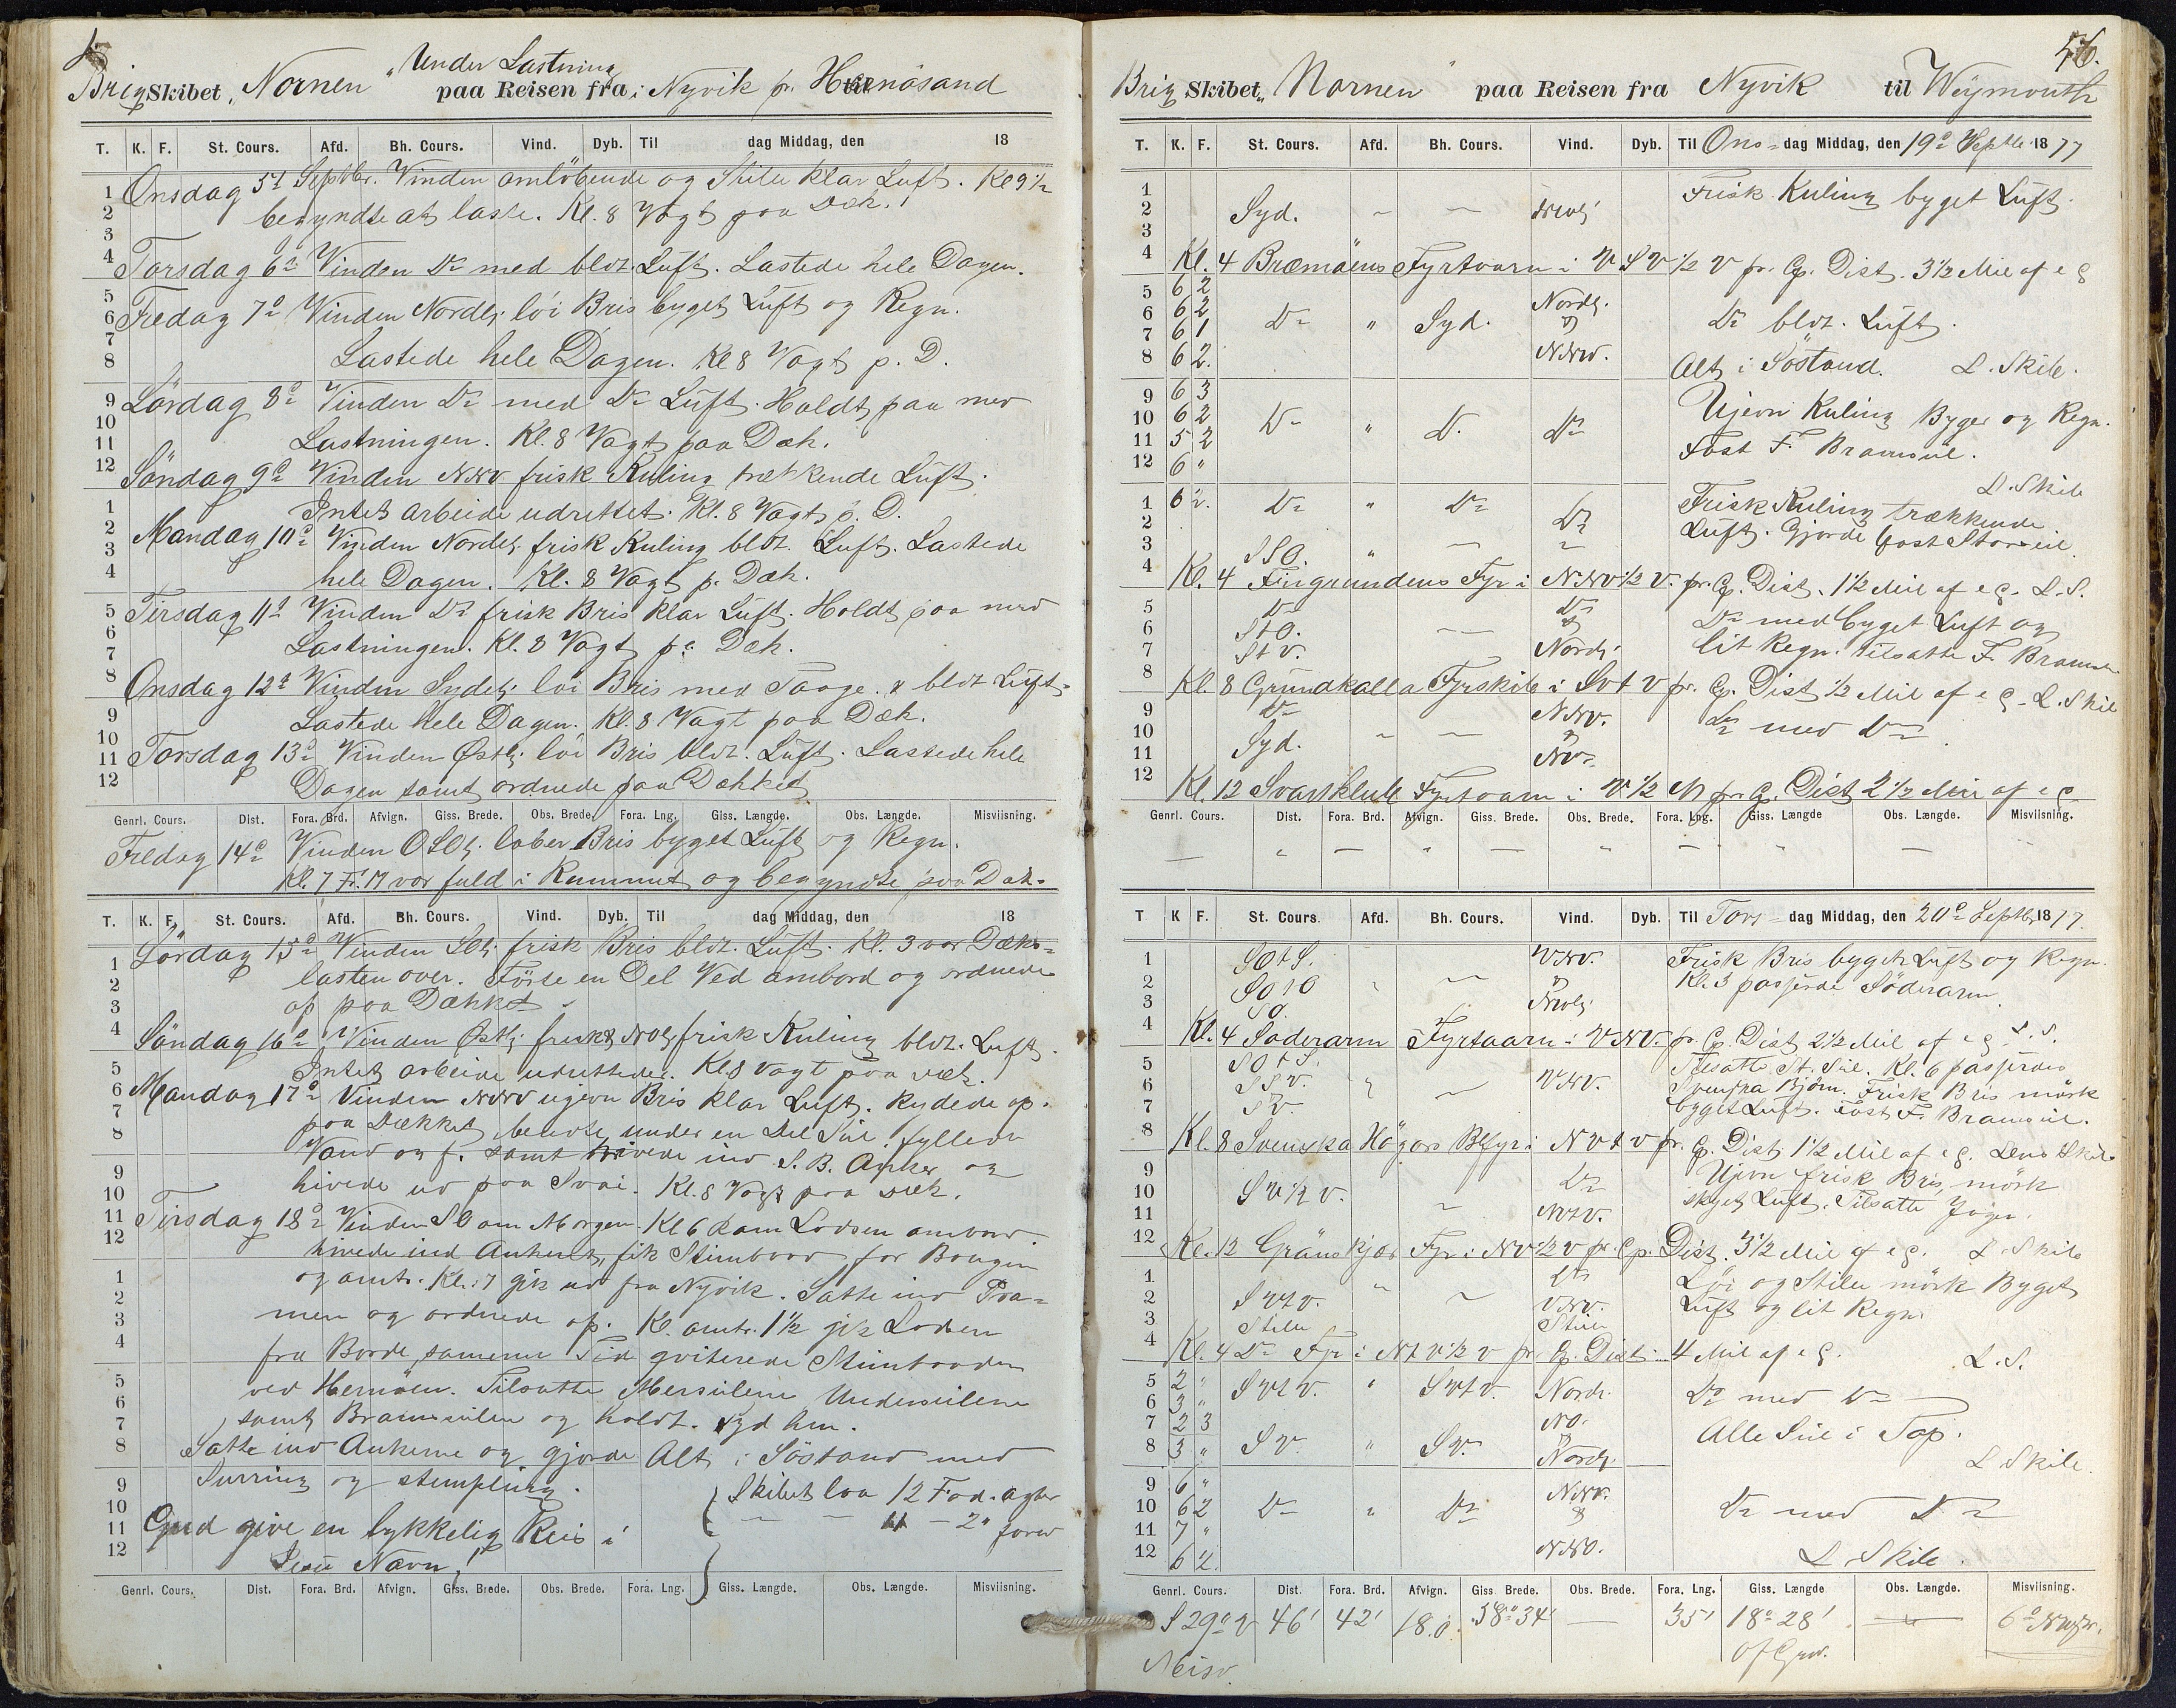 Under Lastning
Brig Skibet „Nornen" paa Reisen fra i Nyvik pr. Hernösand
T. K. F. St. Cours. Afd. Bh. Cours. Vind. Dyb. Til dag Middag, den 18
Onsdag 5te Septbr. Vinden omlöbende og Stille klar Luft. Kl 9½
begyndte at laste. Kl. 8 Vagt paa Dæk.
Torsdag 6te Vinden Do med bldt. Luft. Lastede hele Dagen.
Fredag 7de Vinden Nordlig löi Bris byget Luft og Regn.
Lastede hele Dagen. Kl 8 Vagt p. D.
Lördag 8de Vinden Do med Do Luft. Holdt paa med
Lastningen. Kl. 8 Vagt paa Dæk.
Söndag 9de Vinden NNV frisk Kuling trækkende Luft.
Intet arbeide udrettet. Kl. 8 Vagt p. D.
Mandag 10de Vinden Nordlig frisk Kuling bldt. Luft. Lastede
hele Dagen. Kl. 8 Vagt p. Dæk.
Tirsdag 11te Vinden Do frisk Bris klar Luft. Holdt paa med
Lastningen. Kl. 8 Vagt pa Dæk.
Onsdag 12te Vinden Sydlig löi Bris med Taage & bldt Luft.
Lastede hele Dagen. Kl. 8 Vagt paa Dæk.
Torsdag 13de Vinden Østlig löi Bris bldt. Luft. Lastede hele
Dagen samt ordnede paa Dækket
Genrl. Cours. Dist. Fora. Brd. Afvign. Giss. Brede. Obs. Brede. Fora. Lng. Giss. Længde. Obs. Længde. Misviisning.
Fredag 14de Vinden OSOlig laber Bris byget Luft og Regn.
Kl. 7 F.M var fuld i Rummet og begyndte paa Dæk.
T. K. F. St. Cours. Afd. Bh. Cours. Vind. Dyb. Til dag Middag, den 18
Lördag 15de Vinden SOlig frisk Bris bldt. Luft. Kl. 3 var Dæks=
lasten over. Förte en Del Ved ombord og ordnede
op paa Dækket
Söndag 16de Vinden Østlig frisk & NOlig frisk Kuling bldt. Luft.
Intet arbeide udrettedes. Kl 8 Vagt paa Dæk.
Mandag 17de Vinden NNV ujevn Bris klar Luft. Rydede op
paa Dækket bendte under en Del Seil, fyllede
Vand og f. samt hivede ind S. B. Anker og
hivede ud paa Svai. Kl. 8 Vagt paa Dæk.
Tirsdag 18de Vinden SO om Morgen. Kl 6 kom Lodsen ombord.
hivede ind Ankeret, fik Stimbaad for Bougen
og omtr. Kl. 7 gik ud fra Nyvik. Satte ind Pra=
men og ordnede op. Kl. omtr. 1½ gik Lodsen
fra Borde, samme Tid qviterede Stimbaaden
ved Hernöen. Tilsatte Mersseilene Underseilene
samt Bramseilen og holdt Syd hen.
Satte ind Ankerne og gjorde Alt i Söstand med
Surring og stempling.
Skibet laa 12 Fod. agter
— — 11 — 2" forud
Gud give en lykkelig Reis i
Jesu Navn!
Genrl. Cours. Dist. Fora. Brd. Afvign. Giss. Brede. Obs. Brede. Fora. Lng. Giss. Længde. Obs. Længde. Misviisning.
56.
Brig Skibet „Nornen" paa Reisen fra Nyvik til Weymouth
T. K. F. St. Cours. Afd. Bh. Cours. Vind. Dyb. Til Ons= dag Middag, den 19de Septbr 1877
Syd. Frisk Kuling byget Luft.
Kl. 4 Bræmöens Fyrtaarn i VSV ½ V pr. Cp. Dist. 3½ Mil af
5 6 2 Nordlig
6 6 2 Do " Syd. & Do bldt. Luft.
7 6 1
8 6 2. NNV. Alt i Söstand. L. Skibe.
9 6 3 Ujevn Kuling Byger og Regn.
10 6 2 Do " Do Do
11 5 2 Fast F. Bramseil.
12 6 " L. Skibe
1 6 2. Do " Do Do Frisk Kuling trækkende
Luft. Gjorde fast Storseil.
SSO.
Kl. 4 Fingrundens Fyr i NNV ½ V. pr. Cp. Dist. 1½ Mil af L. S.
Do Do Do med byget Luft og
StO. &
StV. Nordlig lit Regn. Tilsatte F. Bramseil
Kl. 8 Grundkalla Fyrskib i SVtV pr. Cp. Dist ½ Mil af L. Skib
Do NNV. Do med Do
Syd. & NV.
Kl. 12 Svartklub Fyrtaarn i V ½ N pr. Cp. Dist 2½ Mil af
Genrl. Cours. Dist. Fora. Brd. Afvign. Giss. Brede. Obs. Brede. Fora. Lng. Giss. Længde Obs. Længde. Misviisning.
T K F. St. Cours. Afd. Bh. Cours. Vind. Dyb. Til Tors= dag Middag, den 20de Septbr. 1877.
SOtS. VNV. Frisk Bris byget Luft og Regn.
SOtO & Kl. 3 passerde Söderarm.
SO.
Kl. 4 Söderarm Fyrtaarn i VNV. pr. Cp. Dist 2½ Mil af L. S.
SOtS. Tilsatte St. Seil. Kl. 6 passerdes
SSV. VNV. Svenska Björn. Frisk Bris mörk
SV. byget Luft. Fast F. Bramseil.
Kl. 8 Svenska Högar Blfyr i NVtV pr. Cp. Dist 1½ Mil af
Do Ujevn frisk Bris, mörk
SV ½ V. skyet Luft. Tilsatte Jager.
NVtV.
Kl. 12 Grönskjær Fyr i NV ½ V pr. Cp. Dist. 3½ Mil af L. Skibe
Do Löi og Stille mörk Byget
SVtV. VNV. Luft og lit Regn
Stille Stille
Kl. 4 Do Fyr i NtV ½ V pr Cp. Dist. 4 Mil af L. S.
5 2 " SVtV. " SVtV. Nordl. Do med Do
6 3 "
7 2 3 NO. & Alle Seil i Top.
8 3 " SV. " SV. Nordlig L Skibe.
9 6 " NNV.
10 6 2 Do " Do & Do med Do
11 7 "
12 6 2. NNO. L Skibe.
Genrl. Cours. Dist. Fora. Brd. Afvign. Giss Brede. Obs. Brede. Fora. Lng. Giss. Længde Obs. Længde. Misviisning.
S 29° V 46' 42' 18.0 58° 34' — 35' 18° 28' —